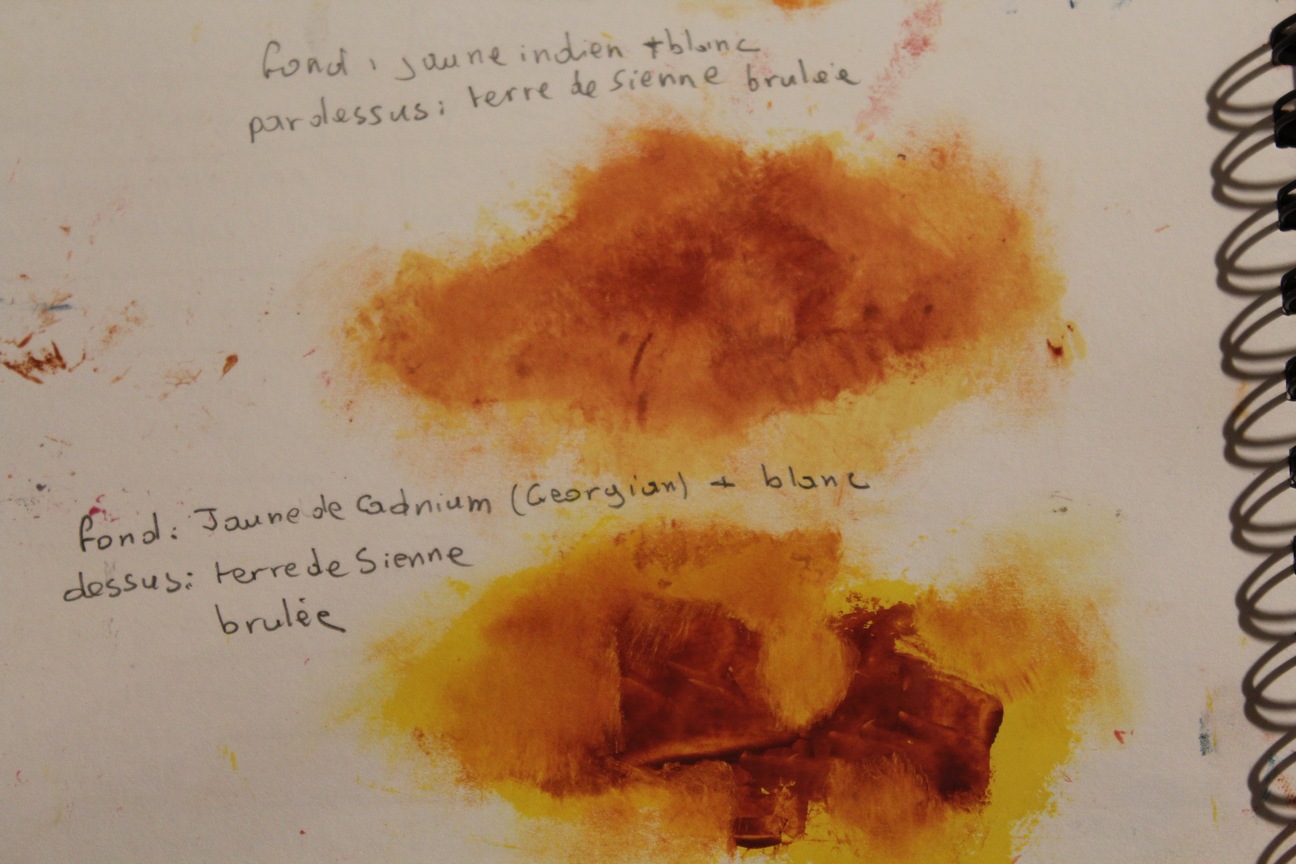 fond : jaune indien + blanc
par dessus : terre de sienne brulée
fond : Jaune de Cadnium (Georgian) + blanc
dessus : terre de Sienne
brulée